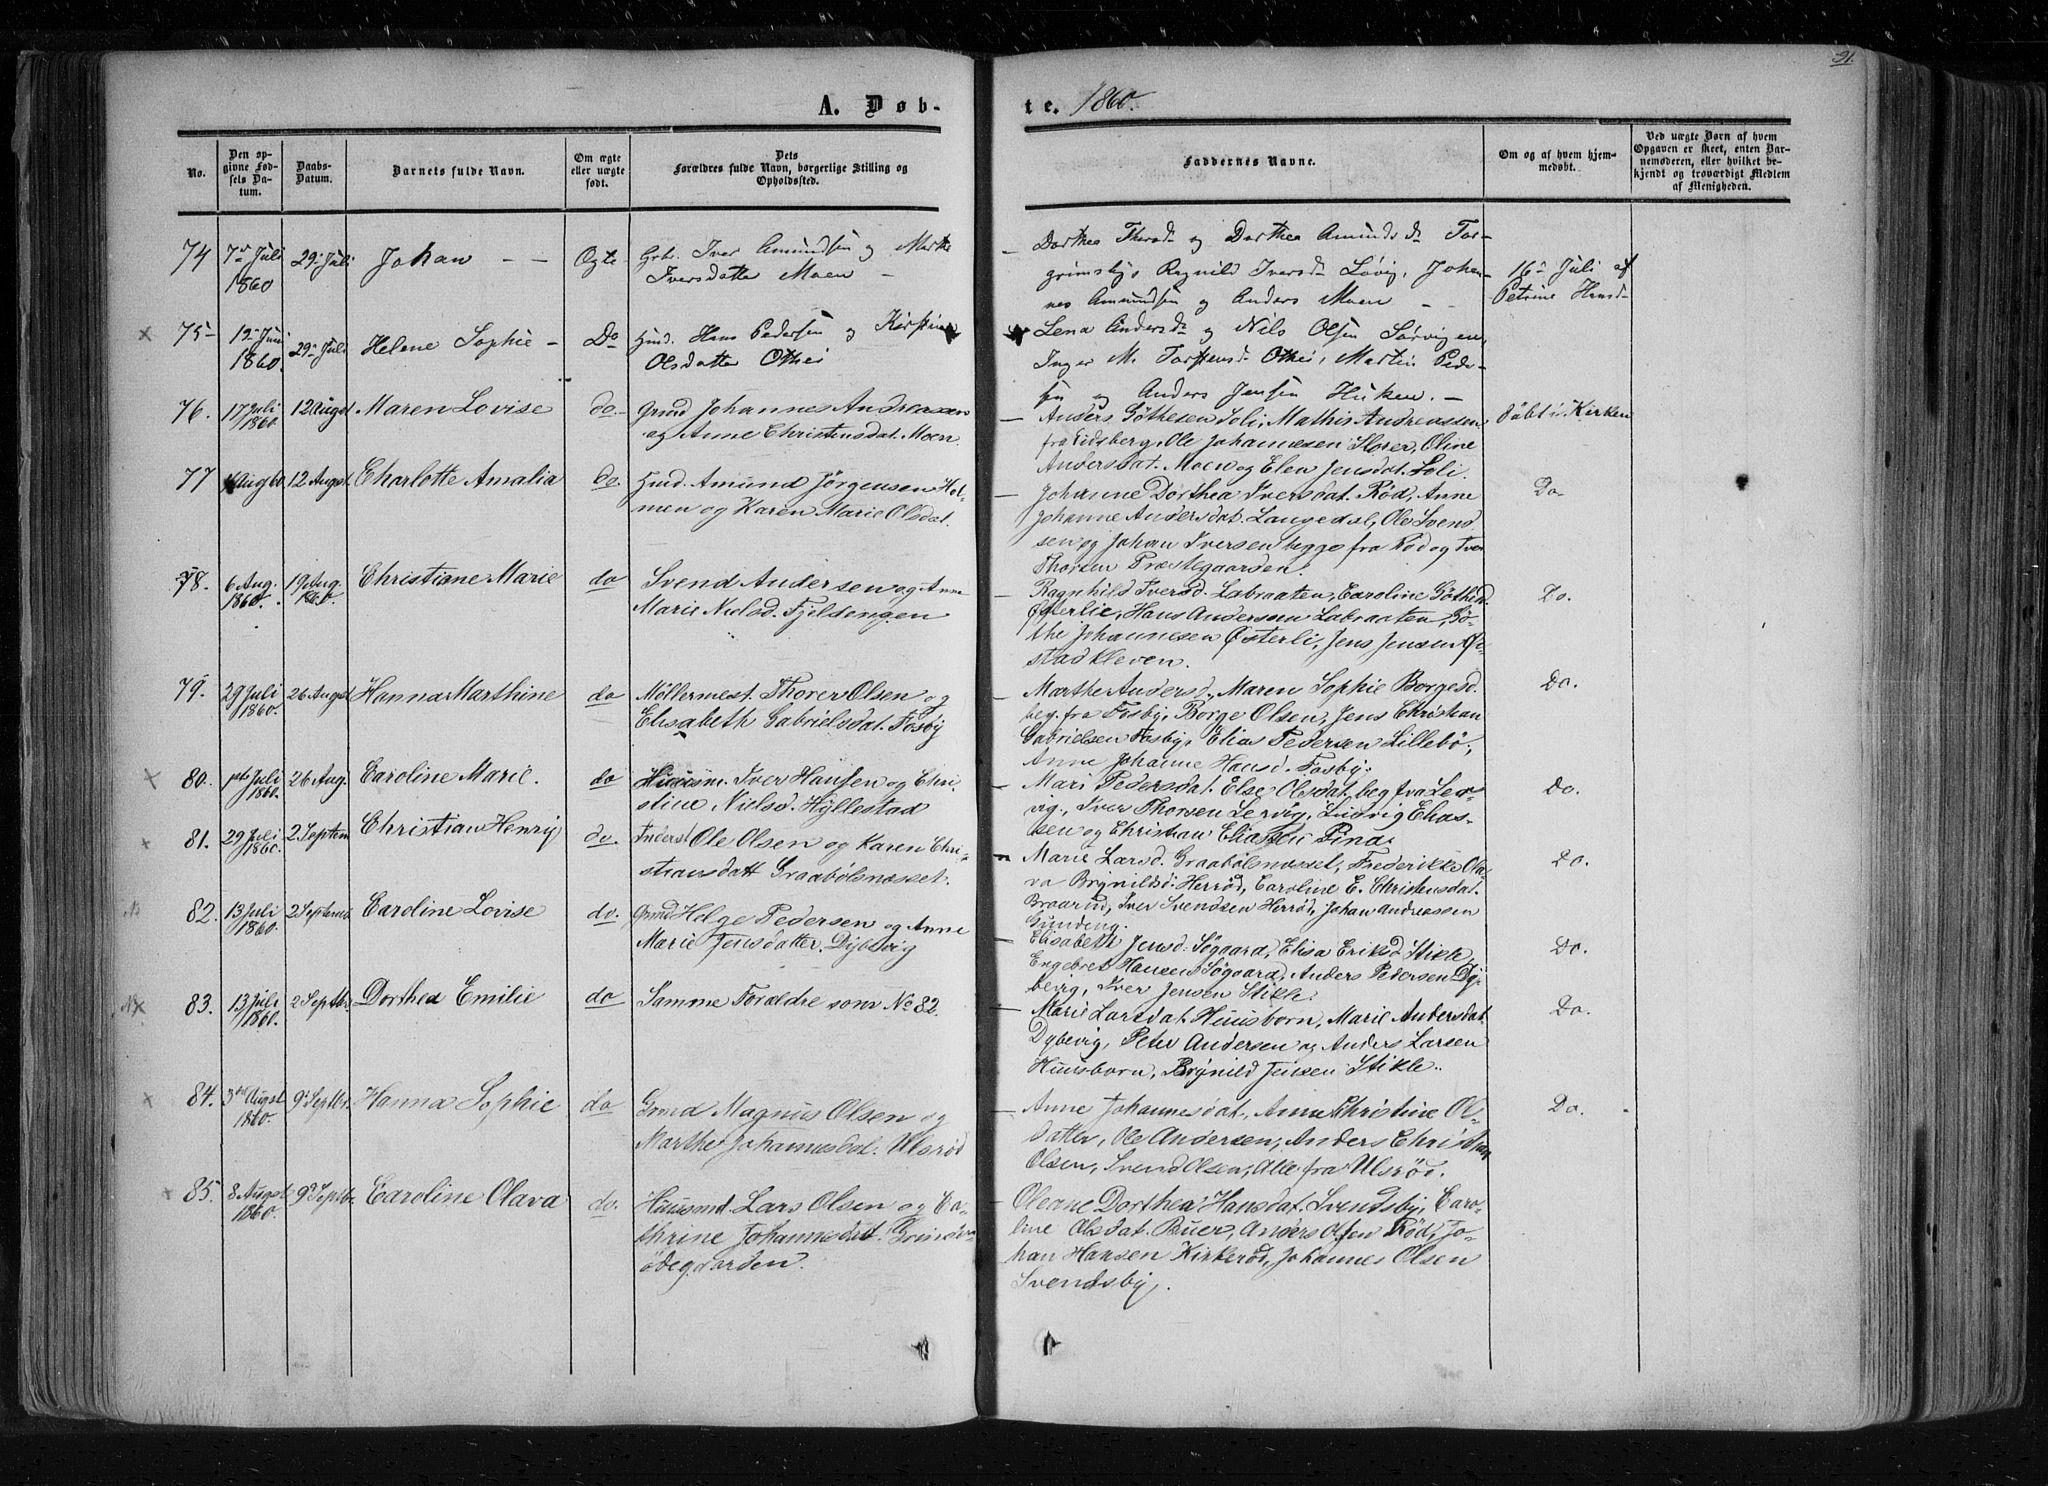 31.
A. Døb-
te. 1860.
No.
Den op-
givne Fød-
sels Da-
tum.
Daabs-
Datum.
Barnets fulde Navn.
Om ægte
eller uægte
født.
Dets
Forældres fulde Navn, borgerlige Stilling og
Opholdssted.
Faddernes Navne.
Om og af hvem hjem-
medøbt.
Ved uægte Børn af hvem
Opgaven er skeet, enten Bar-
nemoderen, eller hvilket be-
kjendt og troværdigt Medlem
af Menigheden.
74 7de Juli 1860 29. Juli Johan Ægte
Grbr. Iver Amundsen og Marthe
Iversdatter Moen
Dorthea Thorsd og Dorthea Amundsd Tor-
grimsby, Ragnild Iversd Løvig, Johan-
nes Amundsen og Anders Moen
16de Juli af
Petrine Hansd
75 12 Juni 1860. 29 Juli Helene Sophie Do
Husmd. Hans Pedersen og Kirstine
Olsdatter Othei
Lena Andersd og Nils Olsen Sørvigen,
Inger M. Torstensd Othei, Martin Peder-
sen og Anders Jensen Huken.
76. 17 Juli 1860. 12 August Maren Lovise do
Grmd Johannes Andreassen
og Anne Christensdat. Moen.
Anders Gøthesen Soli, Mathis Andreassen
fra Eidsberg, Ole Johannesen Floser, Oline
Andersdat. Moen og Elen Jensdat. Soli.
Døbt i Kirken
77 Aug 60 12 August. Charlotte Amalia do.
Husmd. Amund Jørgensen Hol-
men og Karen Marie Olsdat.
Johanne Dorthea Iversdat. Rød, Anne
Johanne Andersdat. Langedal, Ole Svend
sen og Johan Iversen begge fra Rød og Iver
Thorsen Præstegaarden.
Do.
78. 6 Aug. 1860. 19 Aug. 1860. Christiane Marie do
Svend Andersen og Anne
Marie Nielsd. Fjelsengen
Ragnhild Iversd. Labraaten, Caroline Gøthesd.
Østerlie, Hans Andersen Labraaten, Gø-
the Johannesen Østerli, Jens Jensen Øi-
stadkleven.
Do.
79. 29 Juli 1860. 26 August Hanna Marthine do
Møllermest. Thorer Olsen og
Elisabeth Gabrielsdat. Fosby
Marthe Andersd., Maren Sophie Borgesd.
beg. fra Fosby, Borge Olsen, Jens Christian
Gabrielsen Fosby, Elias Pedersen Lillebö,
Anne Johanne Hansd. Fosby.
Do.
80. 1ste Juli 1860. 26 Aug. Caroline Marie. do
Huusm. Iver Hansen og Chri-
stine Nielsd. Hyllestad
Mari Pedersdat. Else Olsdat. beg fra Ler-
vig., Iver Thorsen Lervig, Ludvig Elias-
sen og Christian Eliassen Pina.
Do.
81. 29 Juli 1860. 2 Septem Christian Henry do.
Inderst Ole Olsen og Karen Chri-
stiansdatt Graabølsnæsset.
Marie Larsd. Graabølsnæsset, Frederikke Ola-
va Brynildsd. Herrød, Caroline E. Christensdat.
Braarud, Iver Svendsen Herrød, Johan Andreassen
Gunding.
Do.
82. 13 Juli 1860. 2 Septemb. Caroline Lovise do.
Grmd Helge Pedersen og Anne
Marie Jensdatter Dybevig
Elisabeth Jensd. Søgaard, Elisa Eriksd Stikle,
Engebret Hansen Søgaard, Anders Pedersen Dy-
bevig, Iver Jensen Stikle.
Do.
83. 13 Juli 1860. 2 Septbr. Dorthea Emilie do
Samme Forældre som No 82.
Marie Larsdat. Huusborn, Marie Andersdat.
Dybevig, Peter Andersen og Anders Larsen
Huusborn, Brynild Jensen Stikle..
Do.
84. 3die August 1860. 9 Septbr. Hanna Sophie do
Grmd Magnus Olsen og
Marthe Johannesdat. Ulsrød
Anne Johannesdat., Anne Christine Ols-
datter, Ole Andersen, Anders Christian
Olsen, Svend Olsen, Alle fra Ulsrød.
Do.
85. 8 August 1860. 9 Septbr. Caroline Olava do.
Huusmd. Lars Olsen og Ca-
thrine Johannesdat.
ödegaarden.
Oleane Dorthea Hansdat. Svendsby, Caro-
line Olsdat. Buer, Anders Olsen Rød, Jo-
han Hansen Kirkerød, Johannes Olsen
Svendsby.